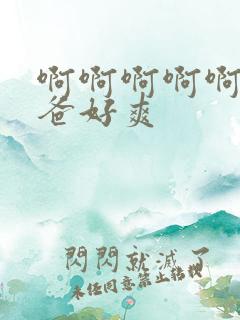 啊啊啊啊啊
爸好爽
閃閃就滅了
未任同意禁止轉載